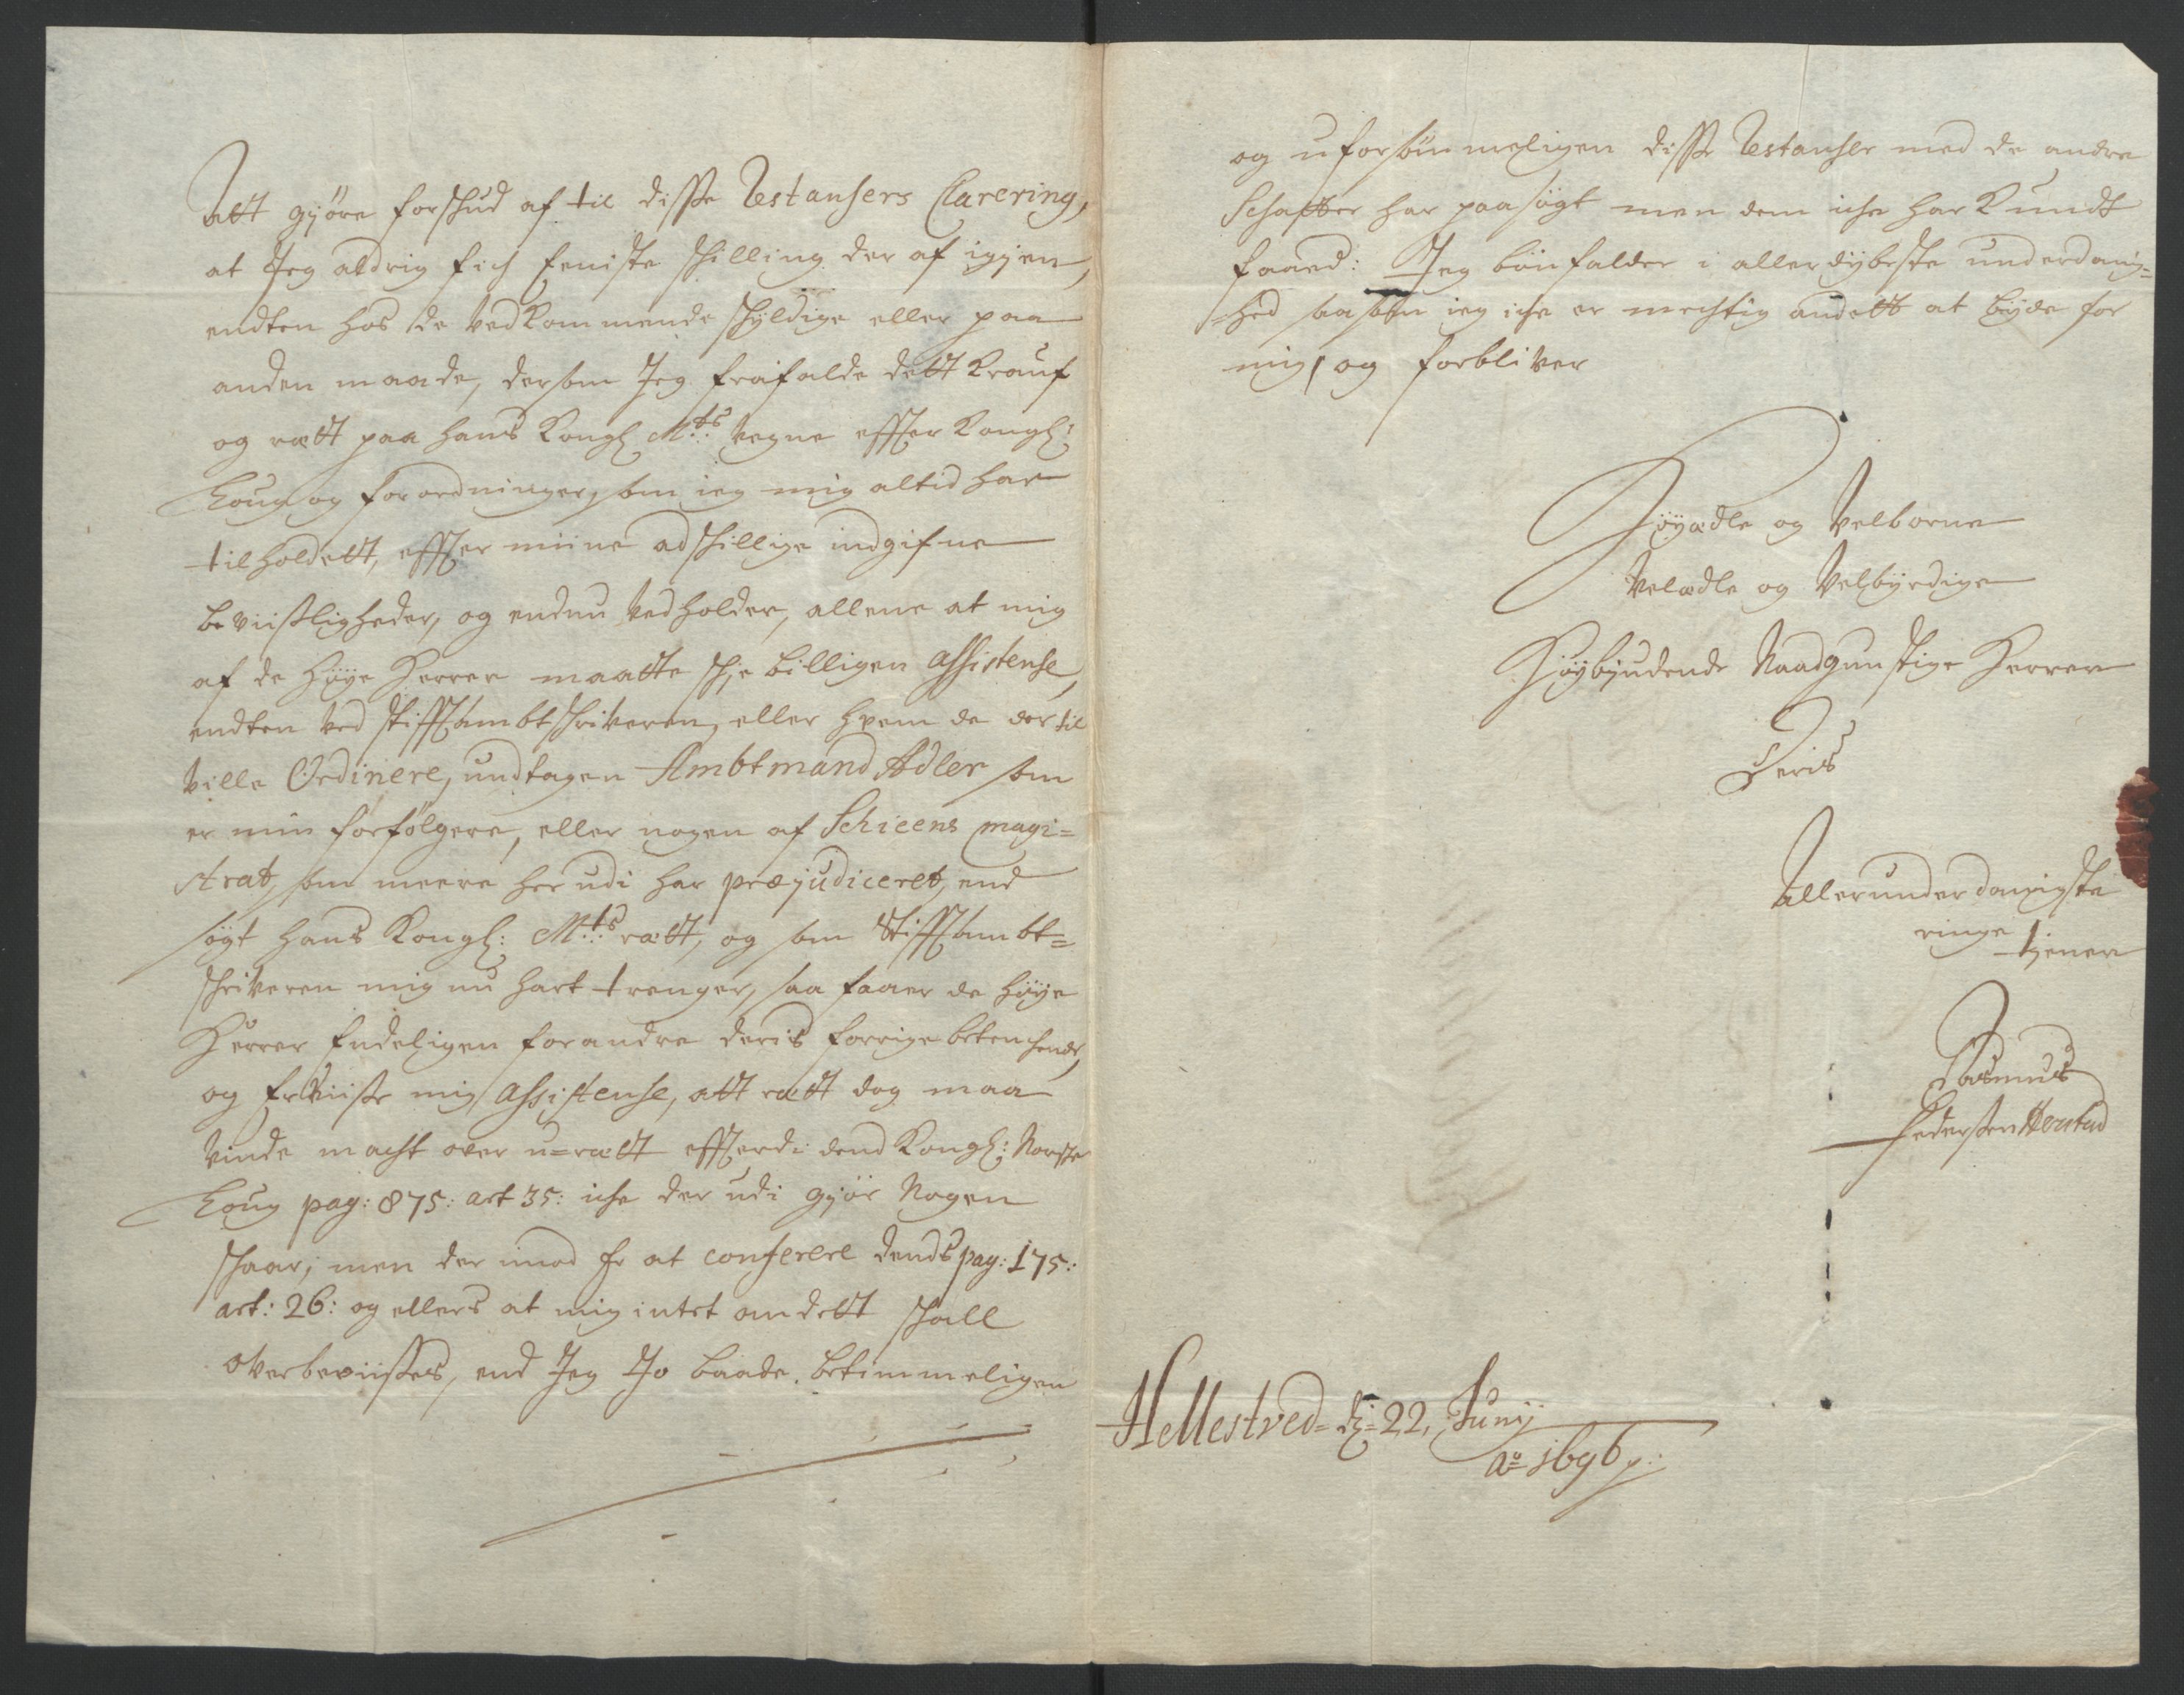 Att gjöre forschud af til disse Restansers Clarering,
at Jeg aldrig fich eeniste schilling der af igjen,
endten hos de vedkommende schyldige eller paa
anden maade, dersom Jeg frafalde dett Krauf
og rætt paa hans Kongl Mts: vegne effter Kongl:
Loug og forordninger, som ieg mig altid har
tilholdett, effter miine adschillige indgifne
beviisligheder, og endnu vedholder, allene at mig
af de høye Herrer maatte schee billigen assistense,
endten ved stifftambtschriveren, eller hvem de der til
ville Ordinere, undtagen Ambtmand Adler som
er min forfølgere, eller nogen af Schieens magi=
strat, som meere her udi har præjudiceret, end
søgt hans Kongl: Mts: rætt, og som Stifftambt=
schriveren mig nu hart trenger, saa faaer de høye
Herrer Endeligen forandre deris forrige betenchende,
og Erviise mig assistense, att rætt dog maa
vinde macht over u=rætt effterdi dend Kongl: Norske
Loug pag: 875: art 35: iche der udi gjør Nogen
schaar, men der imod Er at conferere dends pag: 175:
art: 26: og ellers at mig intet andett schall
overbeviisses, end Jeg Jo baade betimmeligen
og uforsømmeligen disse Restanser med de andre
Schatter har paasøgt men dem iche har Kundt
faaed: Jeg bønfalder i allerdybeste underdanig=
=hed saasom ieg iche er mechtig andett at byde for
mig, og forbliver
Høyædle og Velborne
Velædle og Velbyrdige
Høybydende Naadgunstige Herrer
Deris
Allerunderdanigste
ringe tjener
Rasmus
Pedersen
Hellestved= d: 22, Juny
Ao 1696